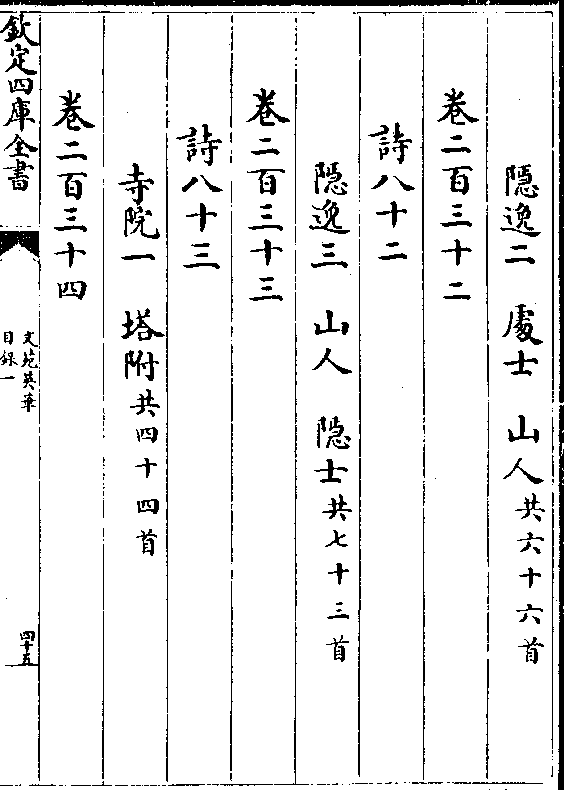 隱逸二 處士 山人共六十六首
卷二百三十二
詩八十二
隱逸三 山人 隱士共七十三首
卷二百三十三
詩八十三
寺院一 塔附共四十四首
卷二百三十四
欽定四庫全書
文苑英華
目錄一
四十五